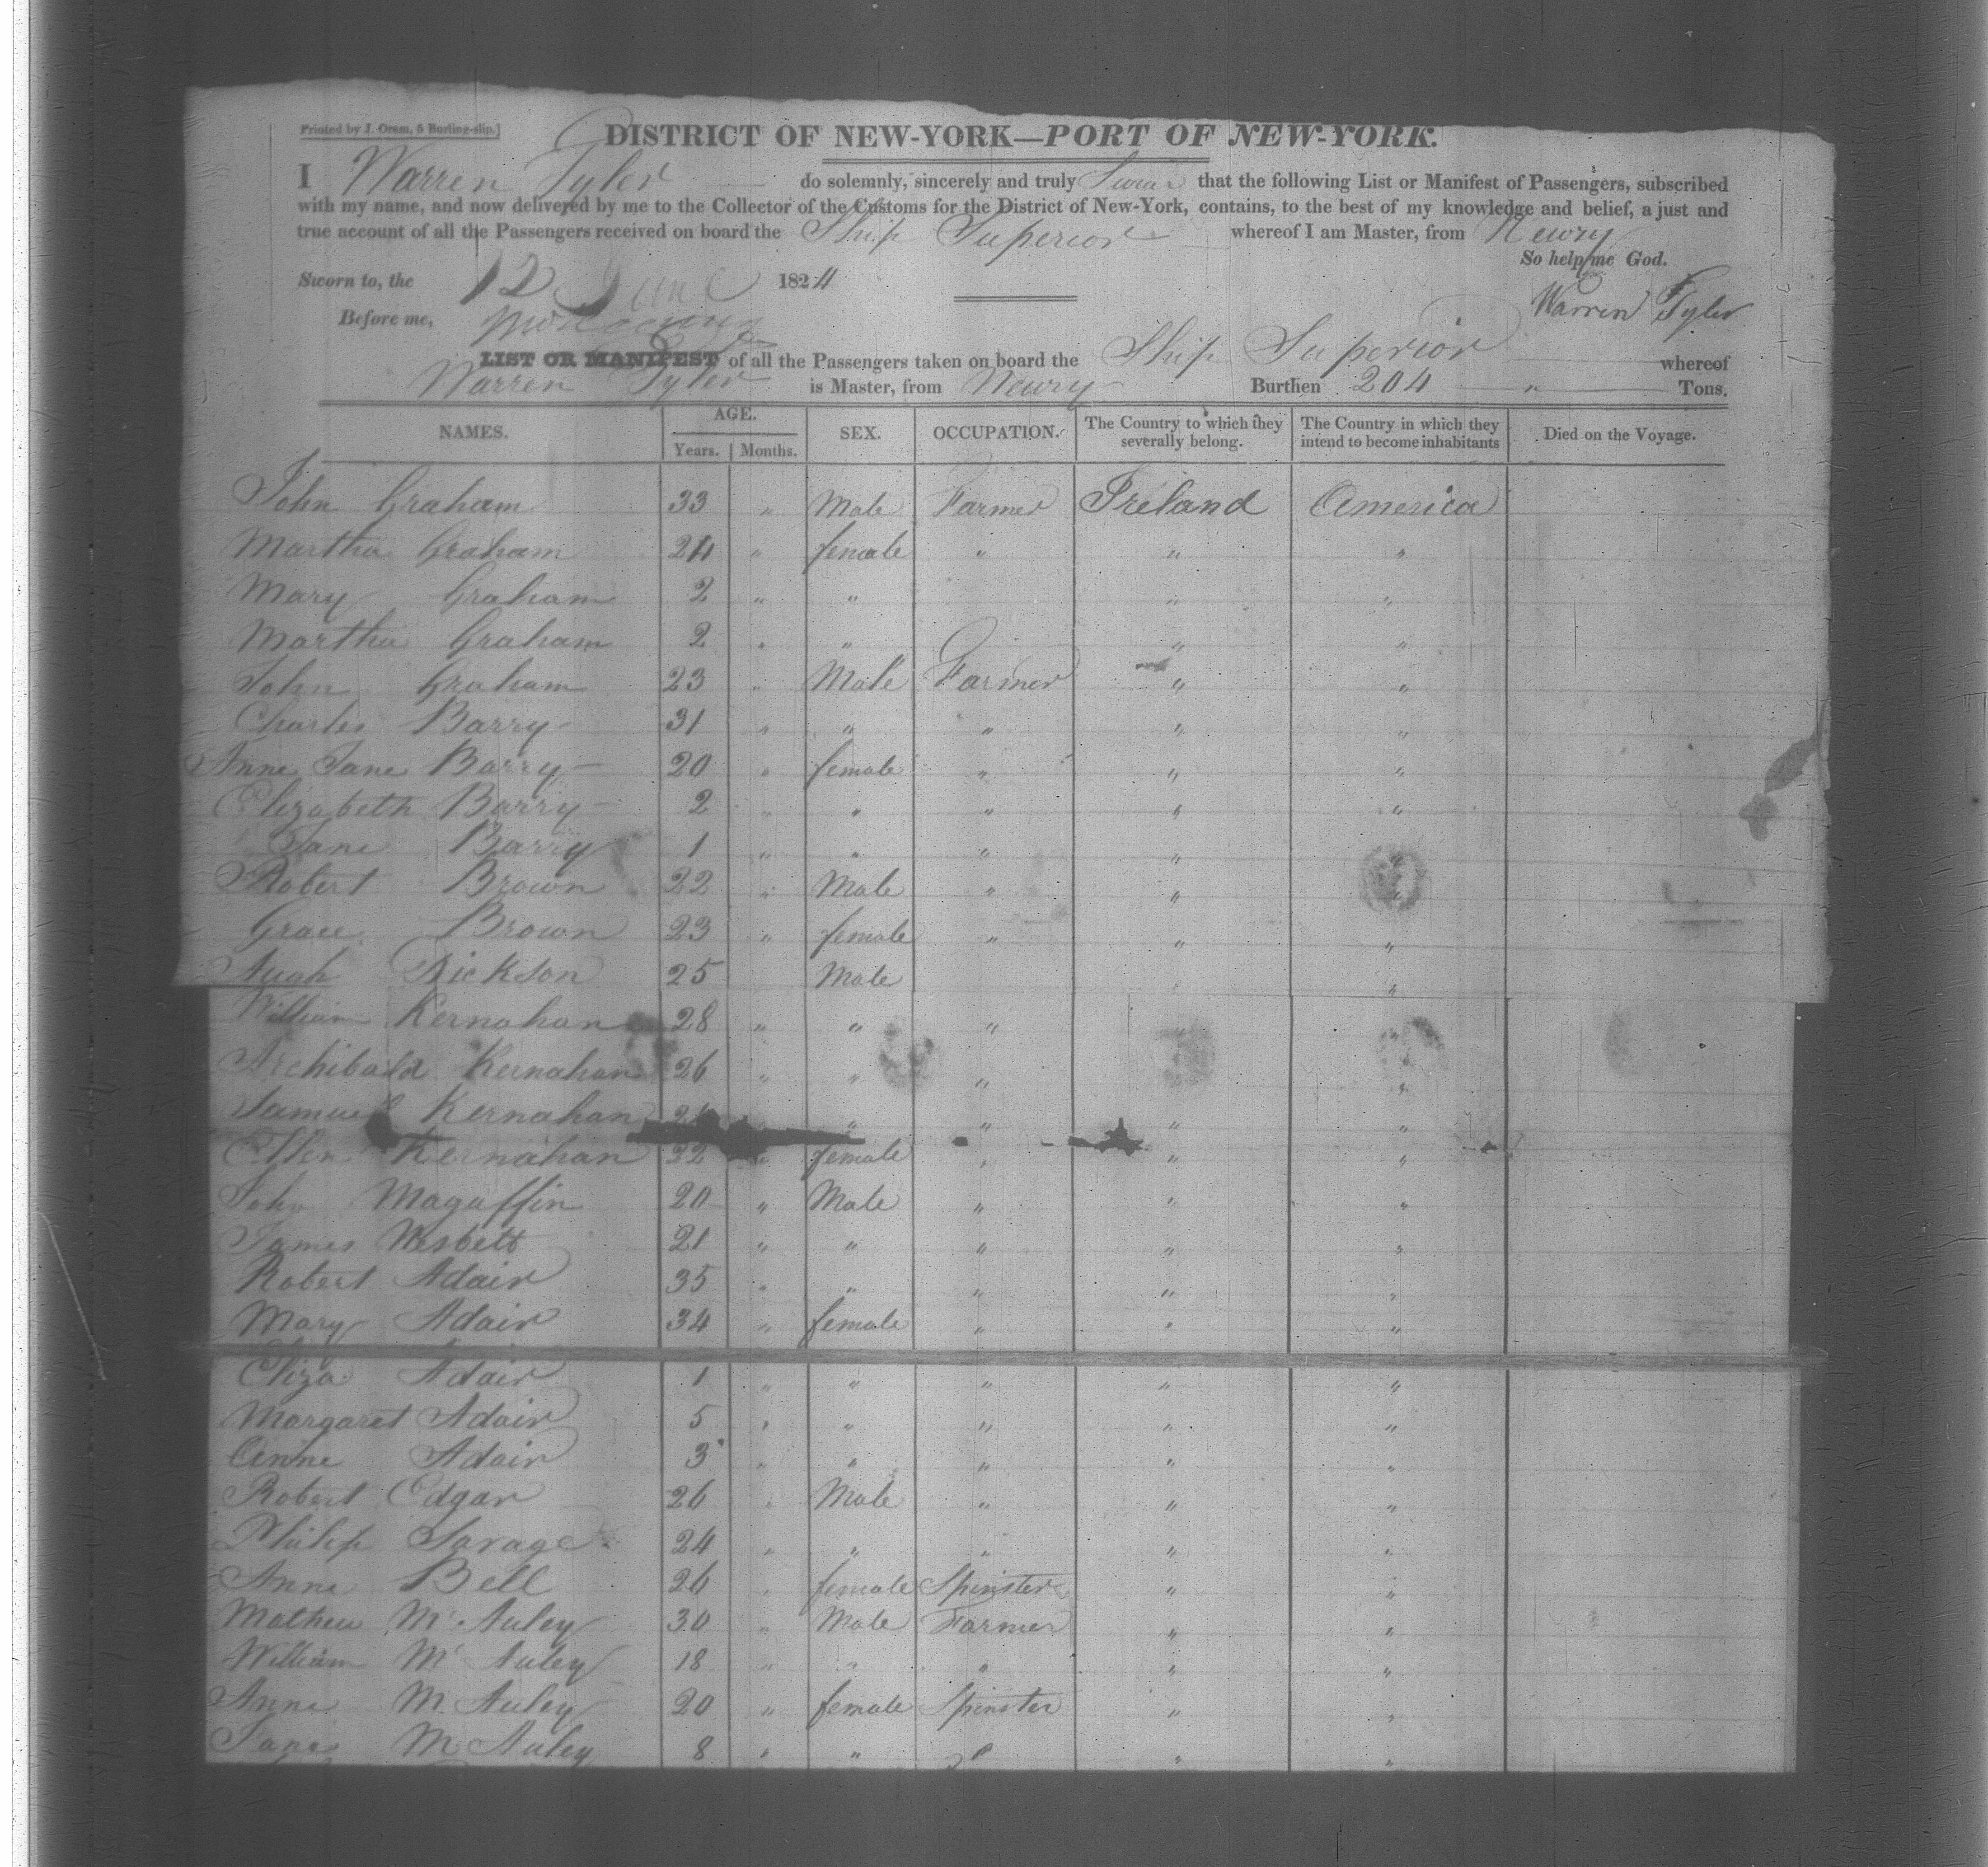 Printed by J. Oram, 5 Burling-slip.]
DISTRICT OF NEW-YORK—PORT OF NEW-YORK.
I Warren Tyler do solemnly, sincerely and truly Swear that the following List or Manifest of Passengers, subscribed
with my name, and now delivered by me to the Collector of the Customs for the District of New-York, contains, to the best of my knowledge and belief, a just and
true account of all the Passengers received on board the Ship Superior whereof I am Master, from Newry
So help me God.
Sworn to, the 12 June 1824
Warren Tyler
Before me,
LIST OR MANIFEST of all the Passengers taken on board the Ship Superior whereof
Warren Tyler is Master, from Newry Burthen 204 " Tons.
NAMES. AGE. Years. Months. SEX. OCCUPATION. The Country to which they severally belong. The Country in which they intend to become inhabitants Died on the Voyage.
John Graham 33 " Male Farmer Ireland America
Martha Graham 24 " female " " "
Mary Graham 2 " " " "
Martha Graham 2 " " " "
John Graham 23 " Male Farmer " "
Charles Barry 31 " " " " "
Anne Jane Barry 20 " female " " "
Elizabeth Barry 2 " " " " "
Jane Barry 1 " " " " "
Robert Brown 22 " Male " " "
Grace Brown 23 " female " " "
Hugh Dickson 25 Male " "
William Kernahan 28 " " "
Archibald Kernahan 26 " " " "
Samuel Kernahan " " " "
Ellen Kernahan 22 " female " " "
John Magaffin 20 " Male " " "
James Nesbett 21 " " " " "
Robert Adair 35 " " " " "
Mary Adair 34 " female " " "
Eliza Adair 1 " " " " "
Margaret Adair 5 " " " " "
Anne Adair 3 " " " " "
Robert Edgar 26 " Male " " "
Philip Savage 24 " " " " "
Anne Bell 26 " female Spinster " "
Mathew Mc Auley 30 " Male Farmer " "
William Mc Auley 18 " " " " "
Anne Mc Auley 20 " female Spinster " "
Jane Mc Auley 8 " " " "